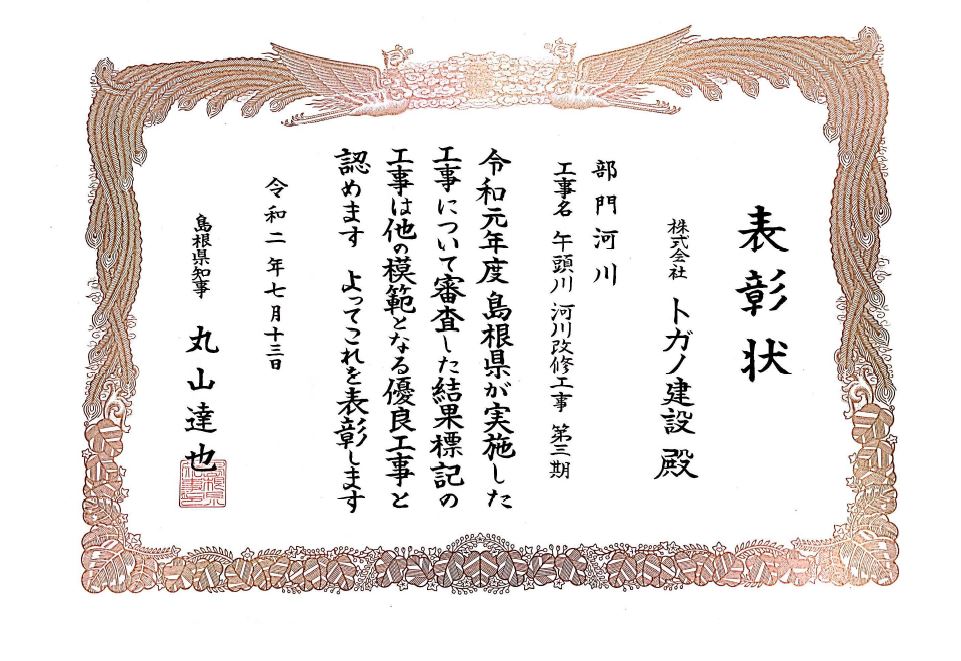 表彰状
株式会社 トガノ建設 殿
部門 河川
工事名 午頭川 河川改修工事 第三期
令和元年度島根県が実施した
工事について審査した結果標記の
工事は他の模範となる優良工事と
認めます よってこれを表彰します
令和二年七月十三日
島根県知事 丸山達也